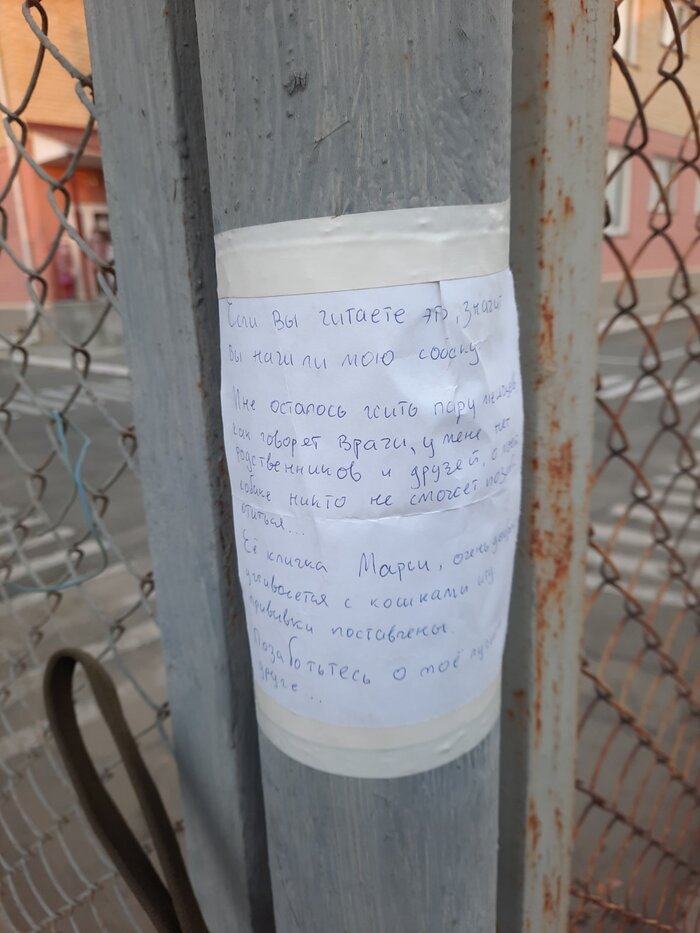 Если Вы читаете это, значит
Вы нашли мою собаку
Мне осталось жить пару
как говорят Врачи, у меня нет
родственников и друзей, о
собаке никто не сможет
отиться...
Её кличка Марси, очень
уживается с кошками
прививки поставлены.
Позаботьтесь о моё
друге...